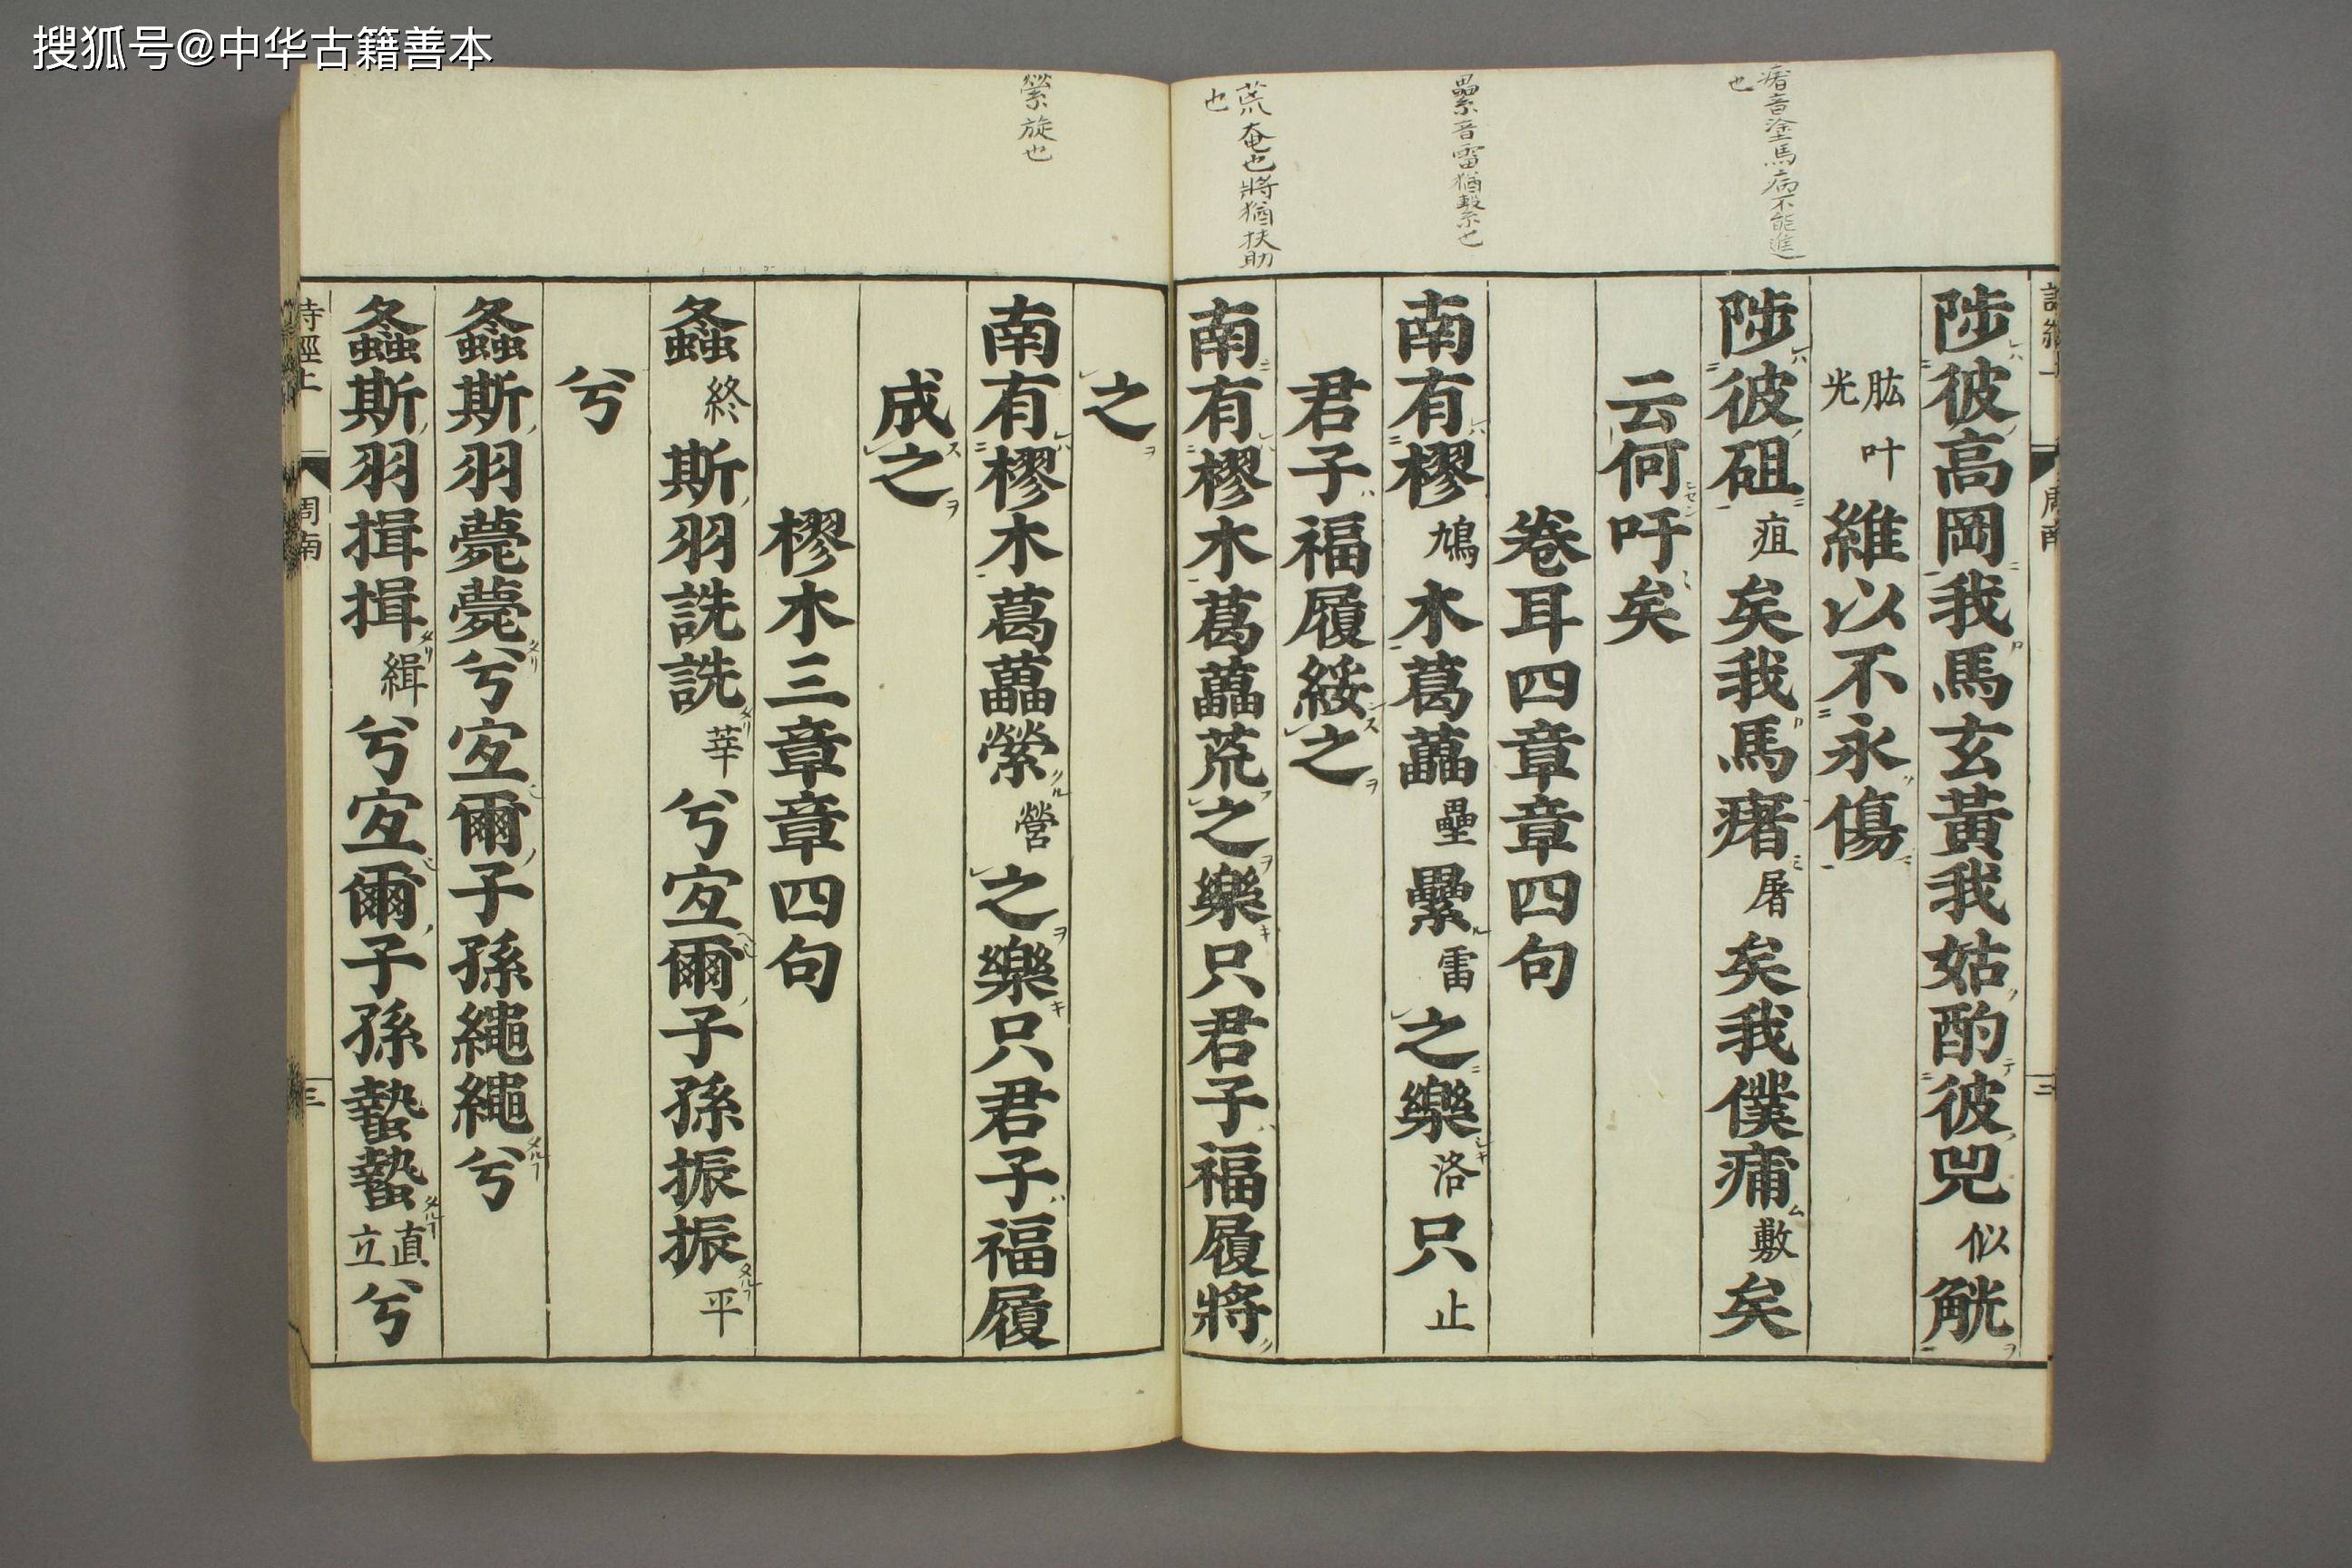 搜狐号@中华古籍善本
瘏音塗馬病不能進
也
纍音雷猶繫也
荒奄也將猶扶助
也
縈旋也
陟彼高岡我馬玄黃我姑酌彼兕似觥
肱叶
光
維以不永傷
陟彼砠疽矣我馬瘏屠矣我僕痡敷矣
云何吁矣
卷耳四章章四句
南有樛鳩木葛藟壘纍雷之樂洛只止
君子福履綏之
南有樛木葛藟荒之樂只君子福履將
之
南有樛木葛藟縈營之樂只君子福履
成之
樛木三章章四句
螽終斯羽詵詵莘兮宐爾子孫振振平
兮
螽斯羽薨薨兮宐爾子孫繩繩兮
螽斯羽揖揖緝兮宐爾子孫蟄蟄直立兮
詩經上
周南
三